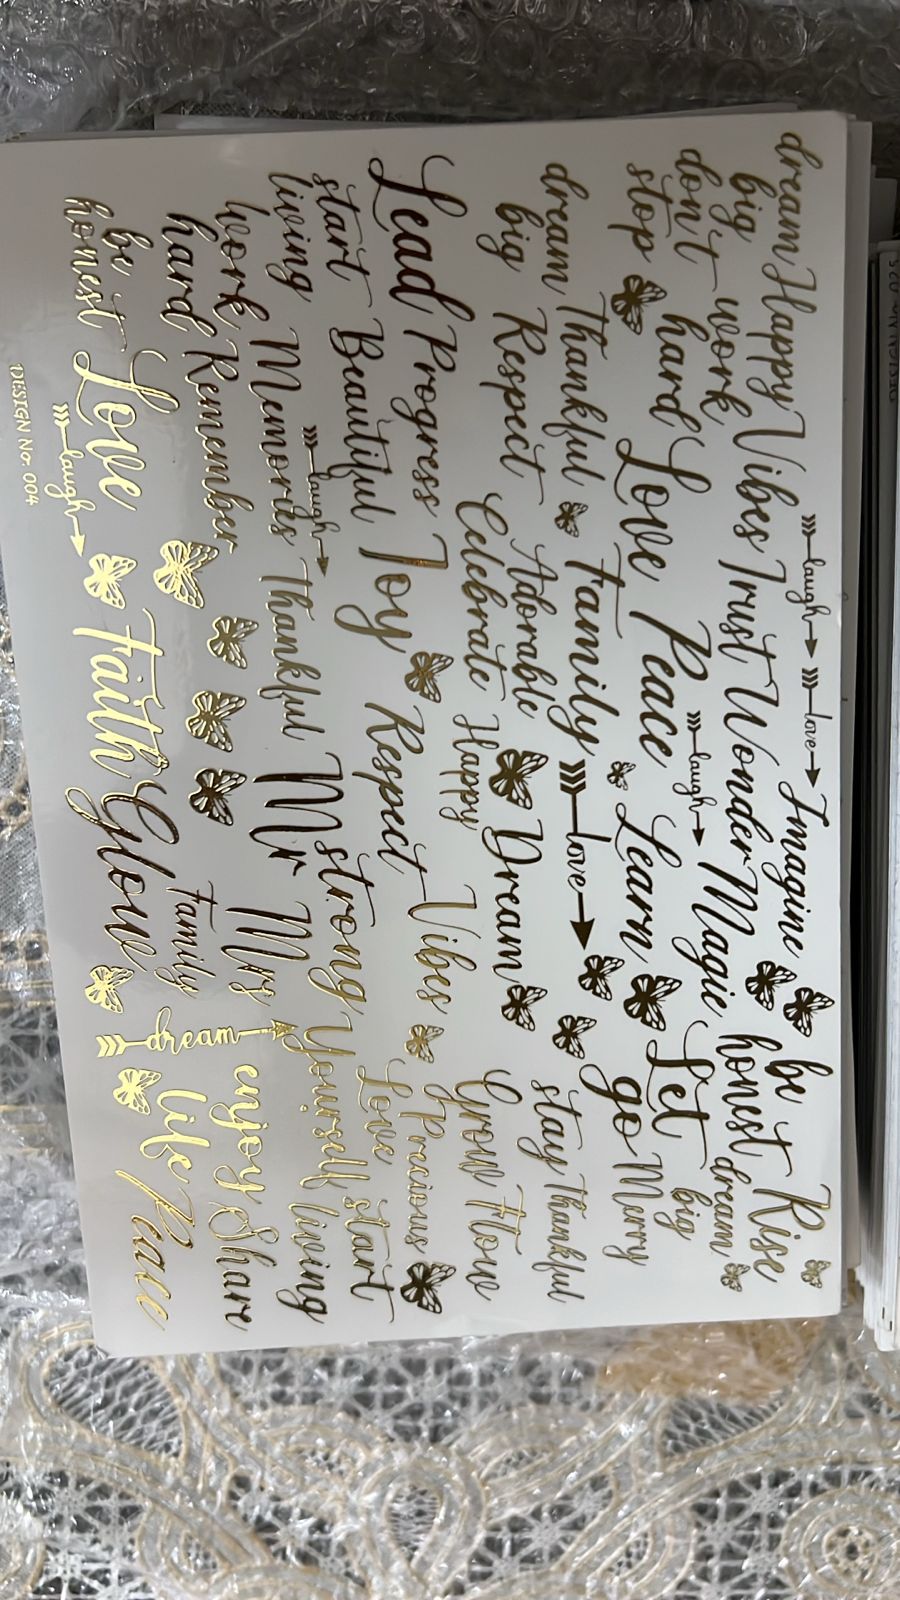 laugh love
dream Happy Vibes Imagine be Rise
big work Trust Wonder Magic honest dream
don't hard Love Peace laugh Let big
stop Learn go Merry
dream Thankful Family love stay Thankful
big Respect Adorable Dream Grow Flow
Celebrate Happy Vibes Precious
Lead Progress Joy Respect Love start
start Beautiful laugh strong Yourself living
living Memories Thankful Mr Mrs
work Remember Family enjoy Share
hard dream life
be Love Faith Glow Peace
honest laugh
DESIGN No. 004